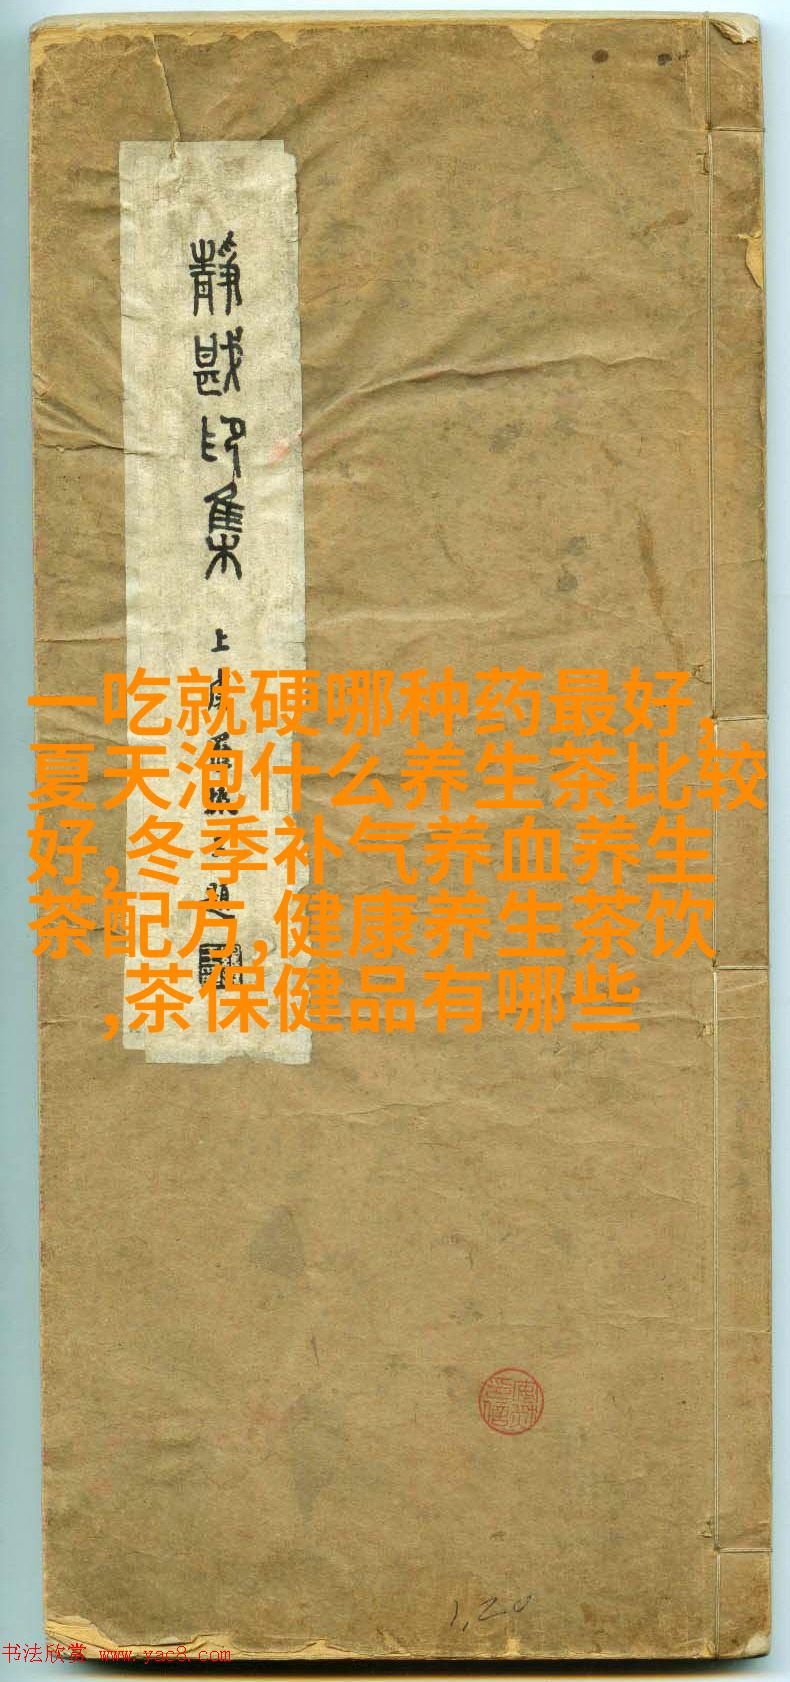 靜戡印集
上
題
一吃就硬哪种药最好,
夏天泡什么养生茶比较
好,冬季补气养血养生
茶配方,健康养生茶饮
,茶保健品有哪些
1,20
书法欣赏 www.yac8.com